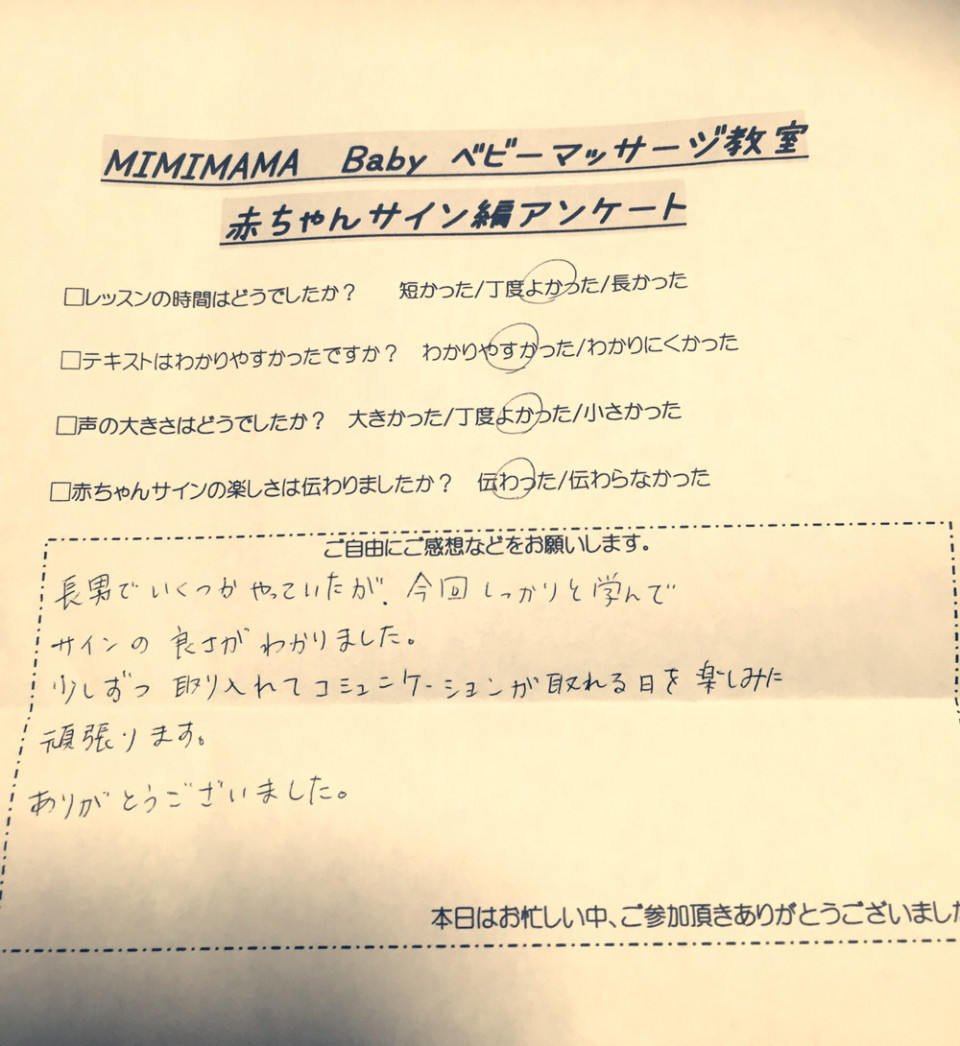 MIMIMAMA Baby ベビーマッサージ教室
赤ちゃんサイン編アンケート
□レッスンの時間はどうでしたか？ 短かった/丁度よかった/長かった
□テキストはわかりやすかったですか？ わかりやすかった/わかりにくかった
□声の大きさはどうでしたか？ 大きかった/丁度よかった/小さかった
□赤ちゃんサインの楽しさは伝わりましたか？ 伝わった/伝わらなかった
ご自由にご感想などをお願いします。
長男でいくつかやっていたが、今回しっかりと学んで
サインの良さがわかりました。
少しずつ取り入れてコミュニケーションが取れる日を楽しみに
頑張ります。
ありがとうございました。
本日はお忙しい中、ご参加頂きありがとうございました